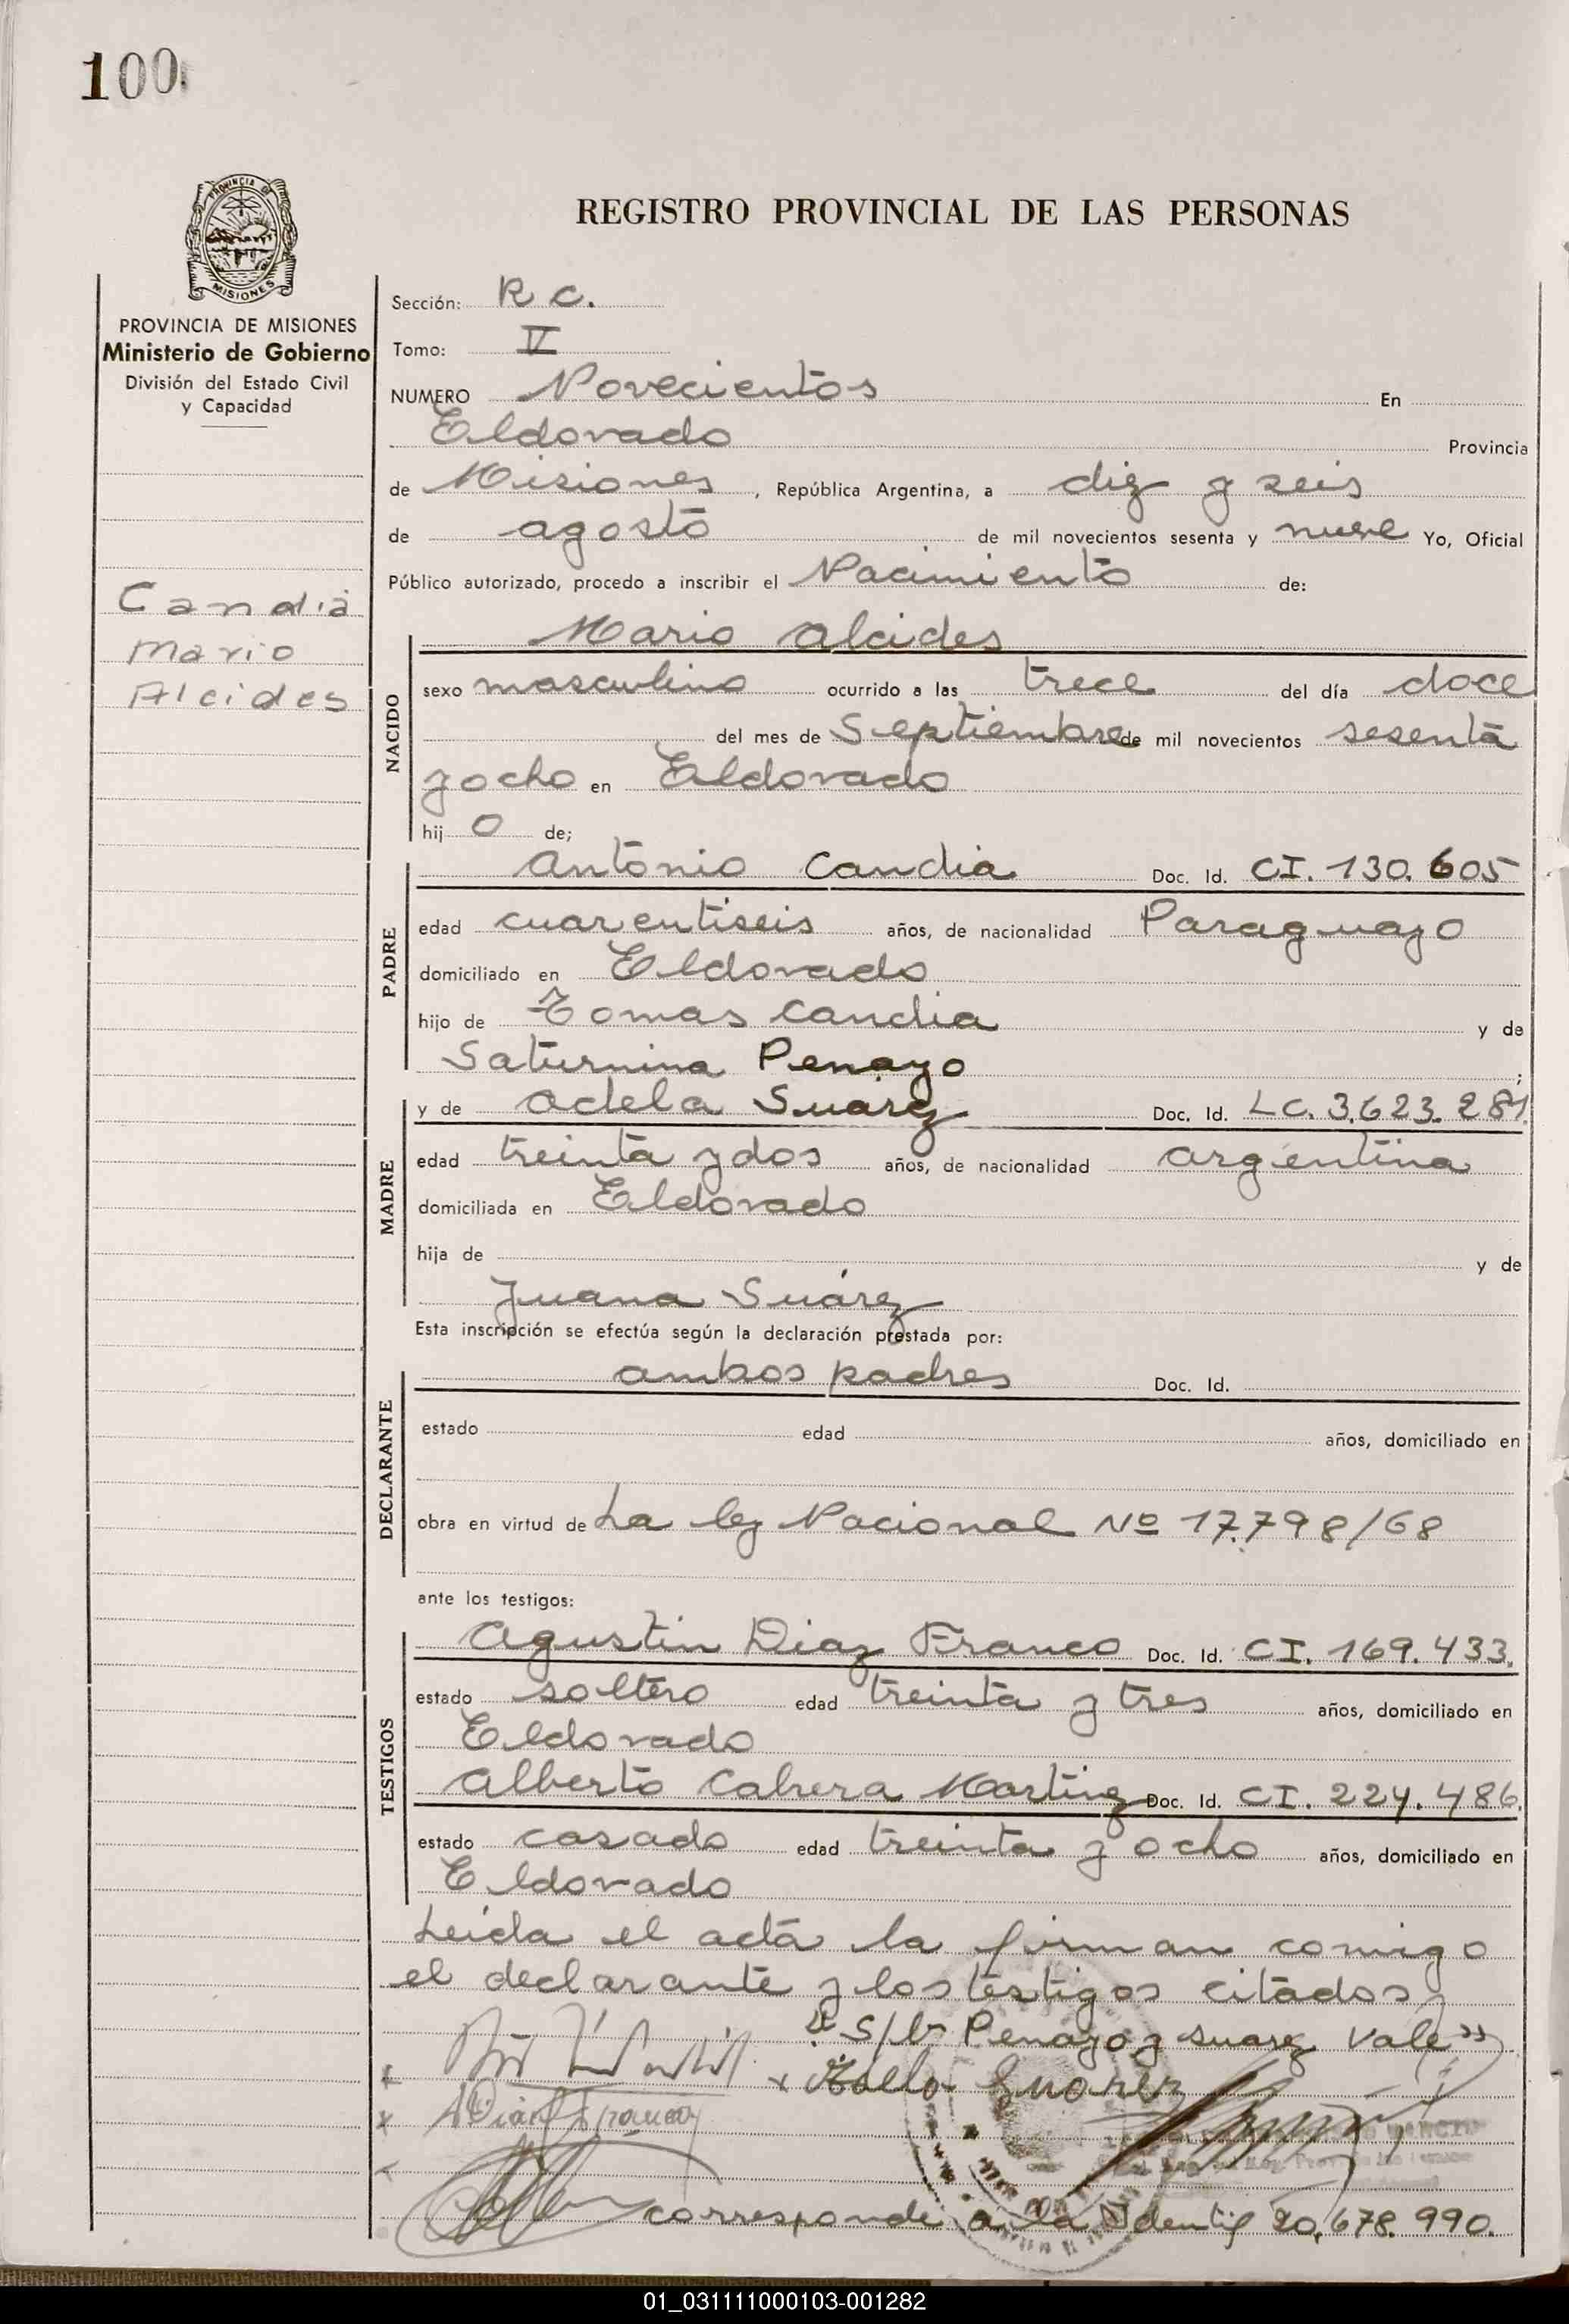 100
PROVINCIA DE
MISIONES
PROVINCIA DE MISIONES
Ministerio de Gobierno
División del Estado Civil
y Capacidad
Candia
Mario
Alcides
REGISTRO PROVINCIAL DE LAS PERSONAS
Sección: R C.
Tomo: IV
NUMERO Novecientos En
Eldorado Provincia
de Misiones, República Argentina, a diez y seis
de agosto de mil novecientos sesenta y nueve Yo, Oficial
Público autorizado, procedo a inscribir el Nacimiento de:
NACIDO
Mario Alcides
sexo masculino ocurrido a las trece del día doce
del mes de Septiembre de mil novecientos sesenta
y ocho en Eldorado
hij o de;
PADRE
Antonio Candia Doc. Id. CI. 130.605
edad cuarentiseis años, de nacionalidad Paraguayo
domiciliado en Eldorado
hijo de Tomas Candia y de
Saturnina Penayo ;
MADRE
y de Adela Suárez Doc. Id. LC. 3.623.281
edad treinta y dos años, de nacionalidad argentina
domiciliada en Eldorado
hija de y de
Juana Suárez
Esta inscripción se efectúa según la declaración prestada por:
DECLARANTE
ambos padres Doc. Id.
estado edad años, domiciliado en
obra en virtud de La ley Nacional Nº 17.798/68
ante los testigos:
TESTIGOS
Agustin Diaz Franco Doc. Id. CI. 169.433.
estado soltero edad treinta y tres años, domiciliado en
Eldorado
Alberto Cabrera Martinez Doc. Id. CI. 224.486.
estado casado edad treinta y ocho años, domiciliado en
Eldorado
Leída el acta la firman comigo
el declarante y los testigos citados
"S/br Penayo y Suarez Vale"
Suarez
corresponde a la Identif 20.678.990.
01_031111000103-001282